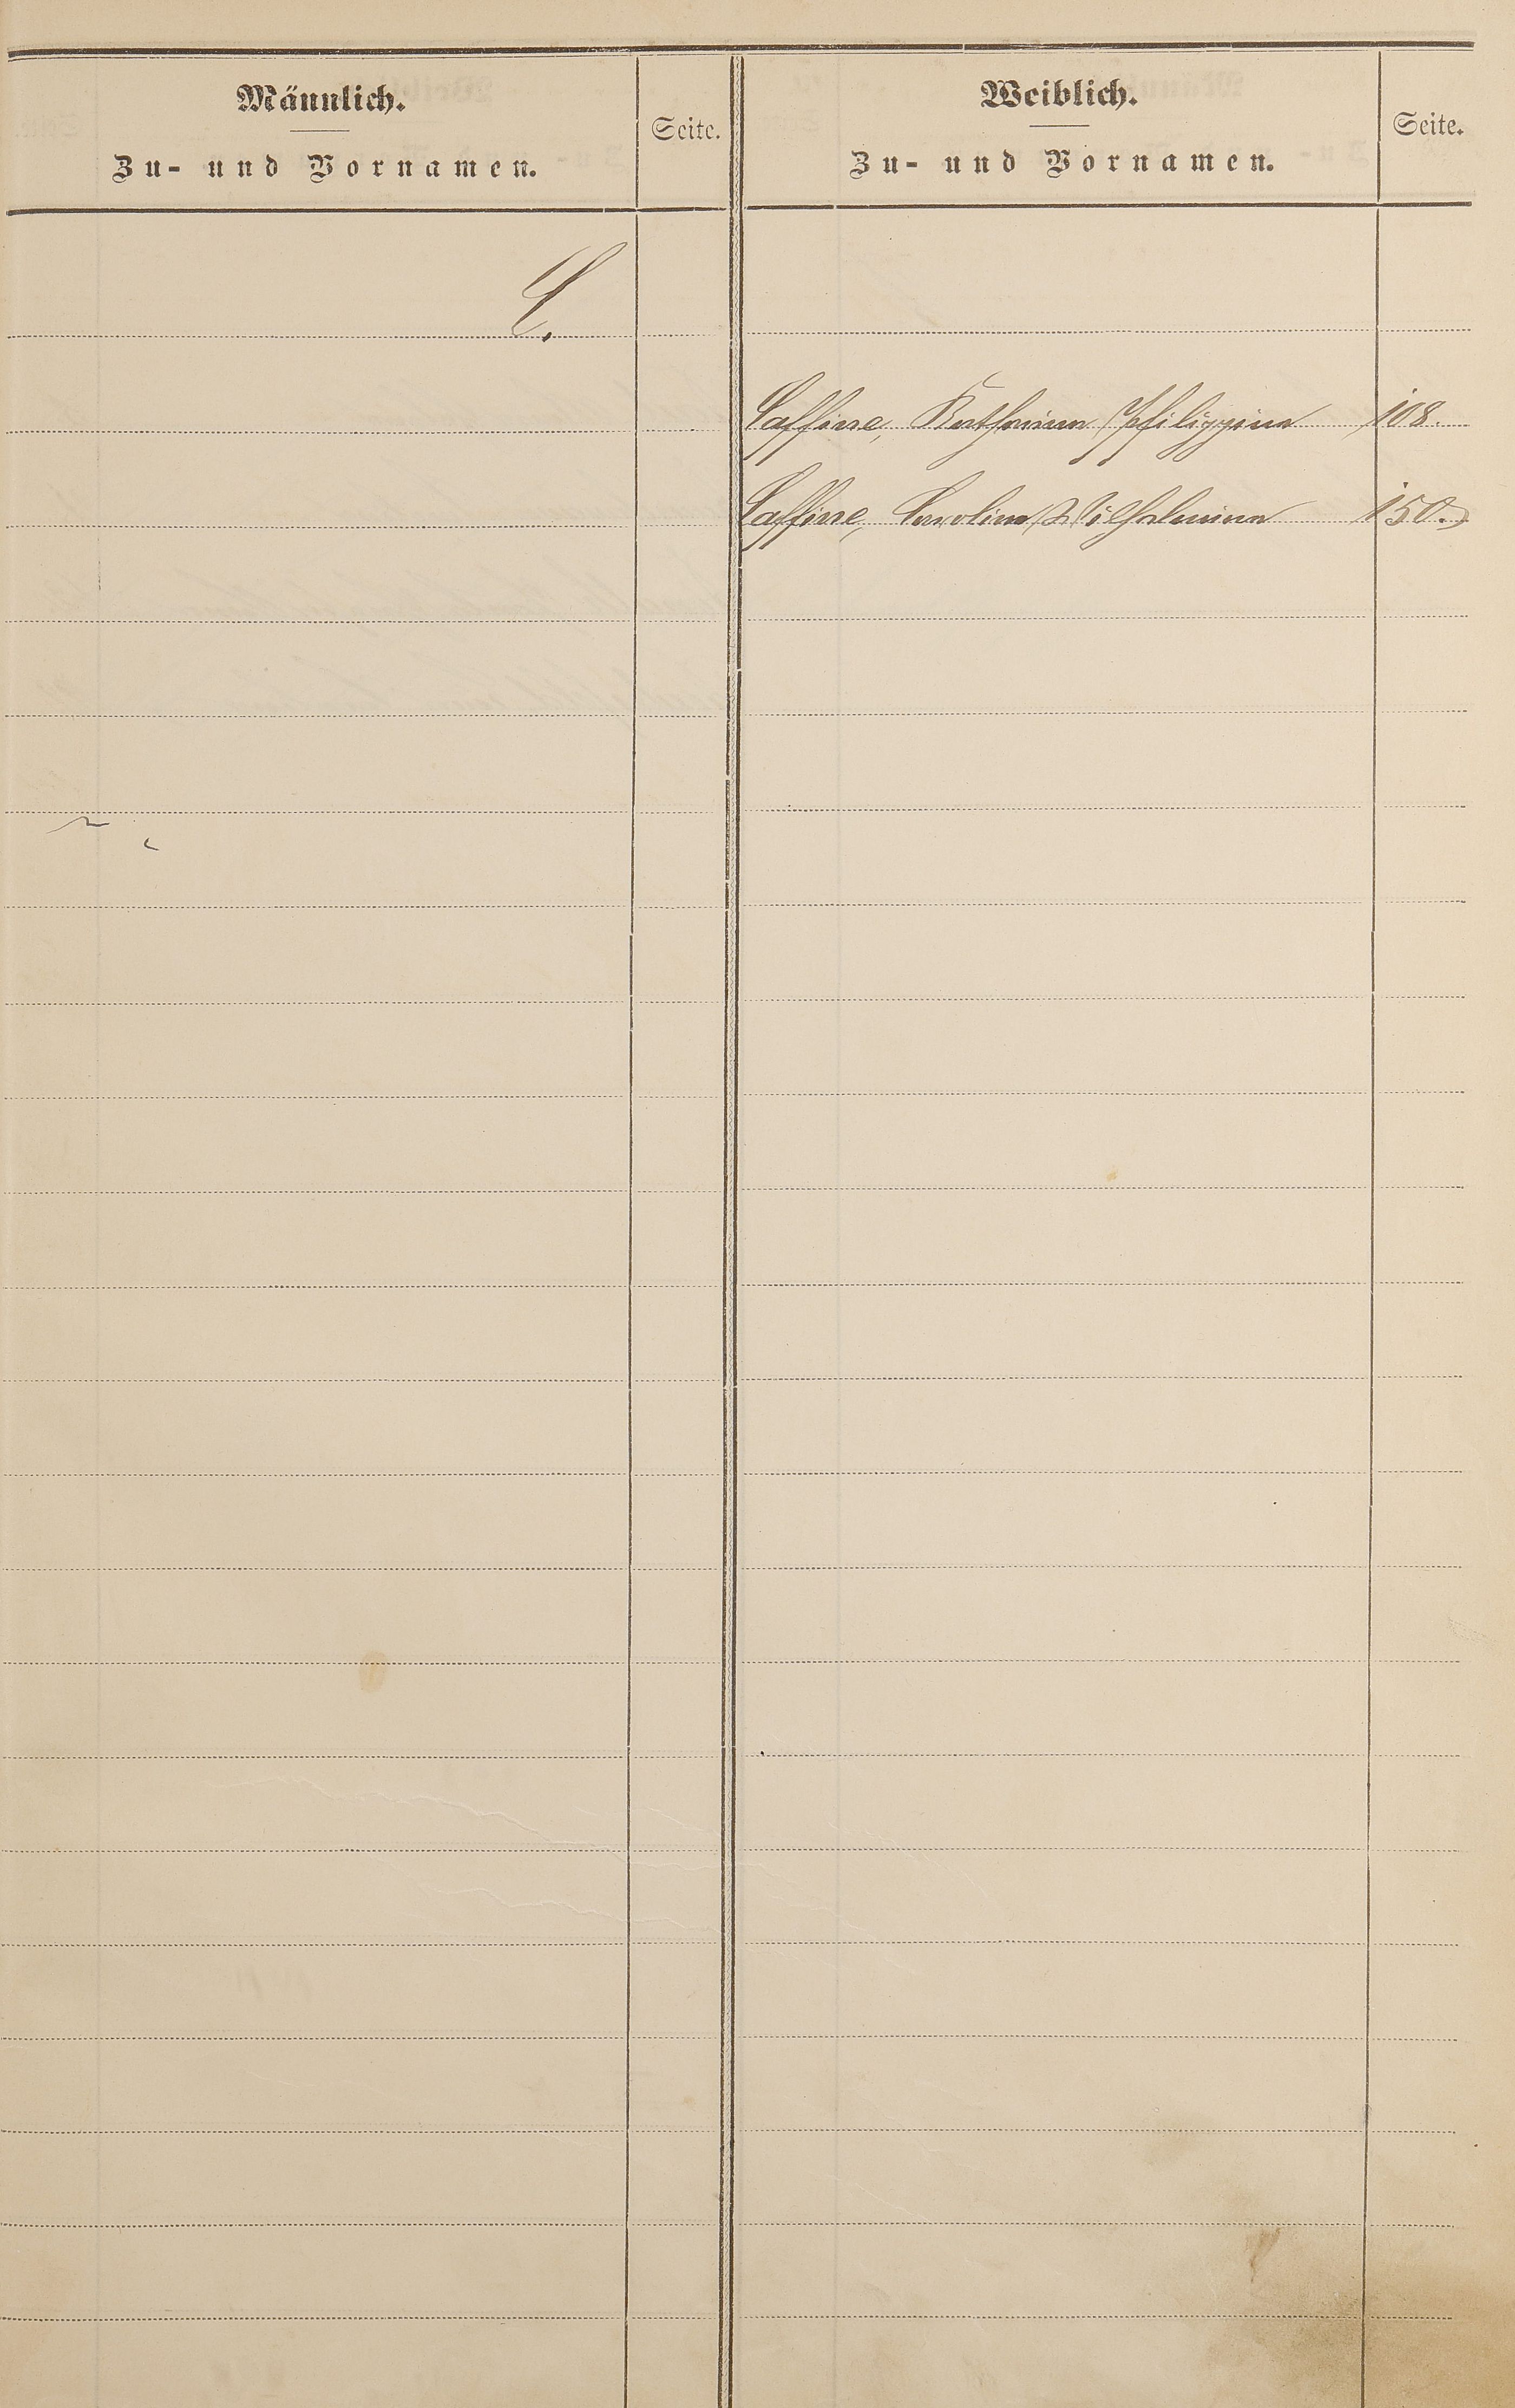 Männlich.
Zu- und Vornamen.
Seite.
Weiblich.
Zu- und Vornamen.
Seite.
C.
Caffine, Katharina Philippina 108.
Caffine, Carolina Wilhelmina 150.